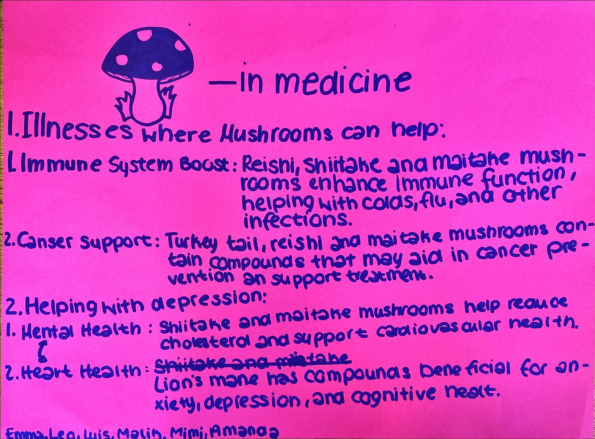 —in medicine
1. Illnesses where Mushrooms can help:
1. Immune System Boost: Reishi, Shiitake and maitake mush-
rooms enhance immune function,
helping with colds, flu, and other
infections.
2. Canser Support: Turkey tail, reishi and maitake mushrooms con-
tain compounds that may aid in cancer pre-
vention an support treatment.
2. Helping with depression:
1. Mental Health: Shiitake and maitake mushrooms help reduce
cholesterol and support cardiovascular health.
2. Heart Health: Shiitake and mistake
Lion's mane has compounds beneficial for an-
xiety, depression, and cognitive healt.
Emma, Leo, Luis, Malin, Mimi, Amanda